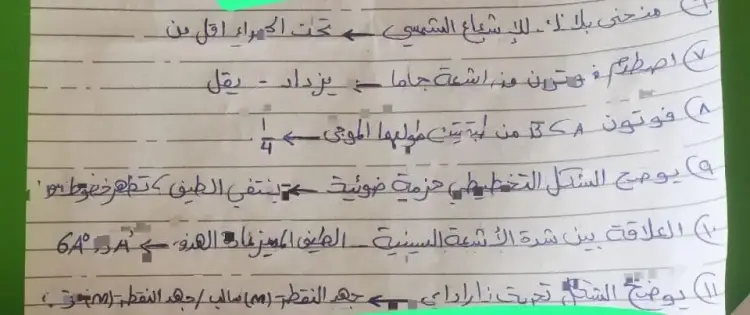 منحنى بلانك للإشعاع الشمسي ← تحت الحمراء اقل من
٧) اصطدم فوتون من اشعة جاما ← يزداد - يقل
٨) فوتون A و B من طولها الموجى ← 1/4
٩) يوضح الشكل التخطيطي حزمة ضوئية ← ينتفي الطيف، تظهر خطوط
١٠) العلاقة بين شدة الأشعة السينية - الطيف المميز ← 6A°
١١) يوضح الشكل تجربة فاراداي ← جهد النقطة (m) سالب / جهد النقطة (m)